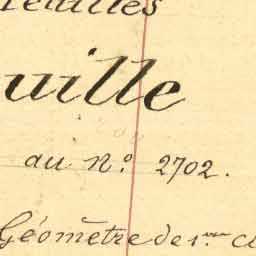 euilles
uille
au N.º 2702.
Géomètre de 1.ère cl